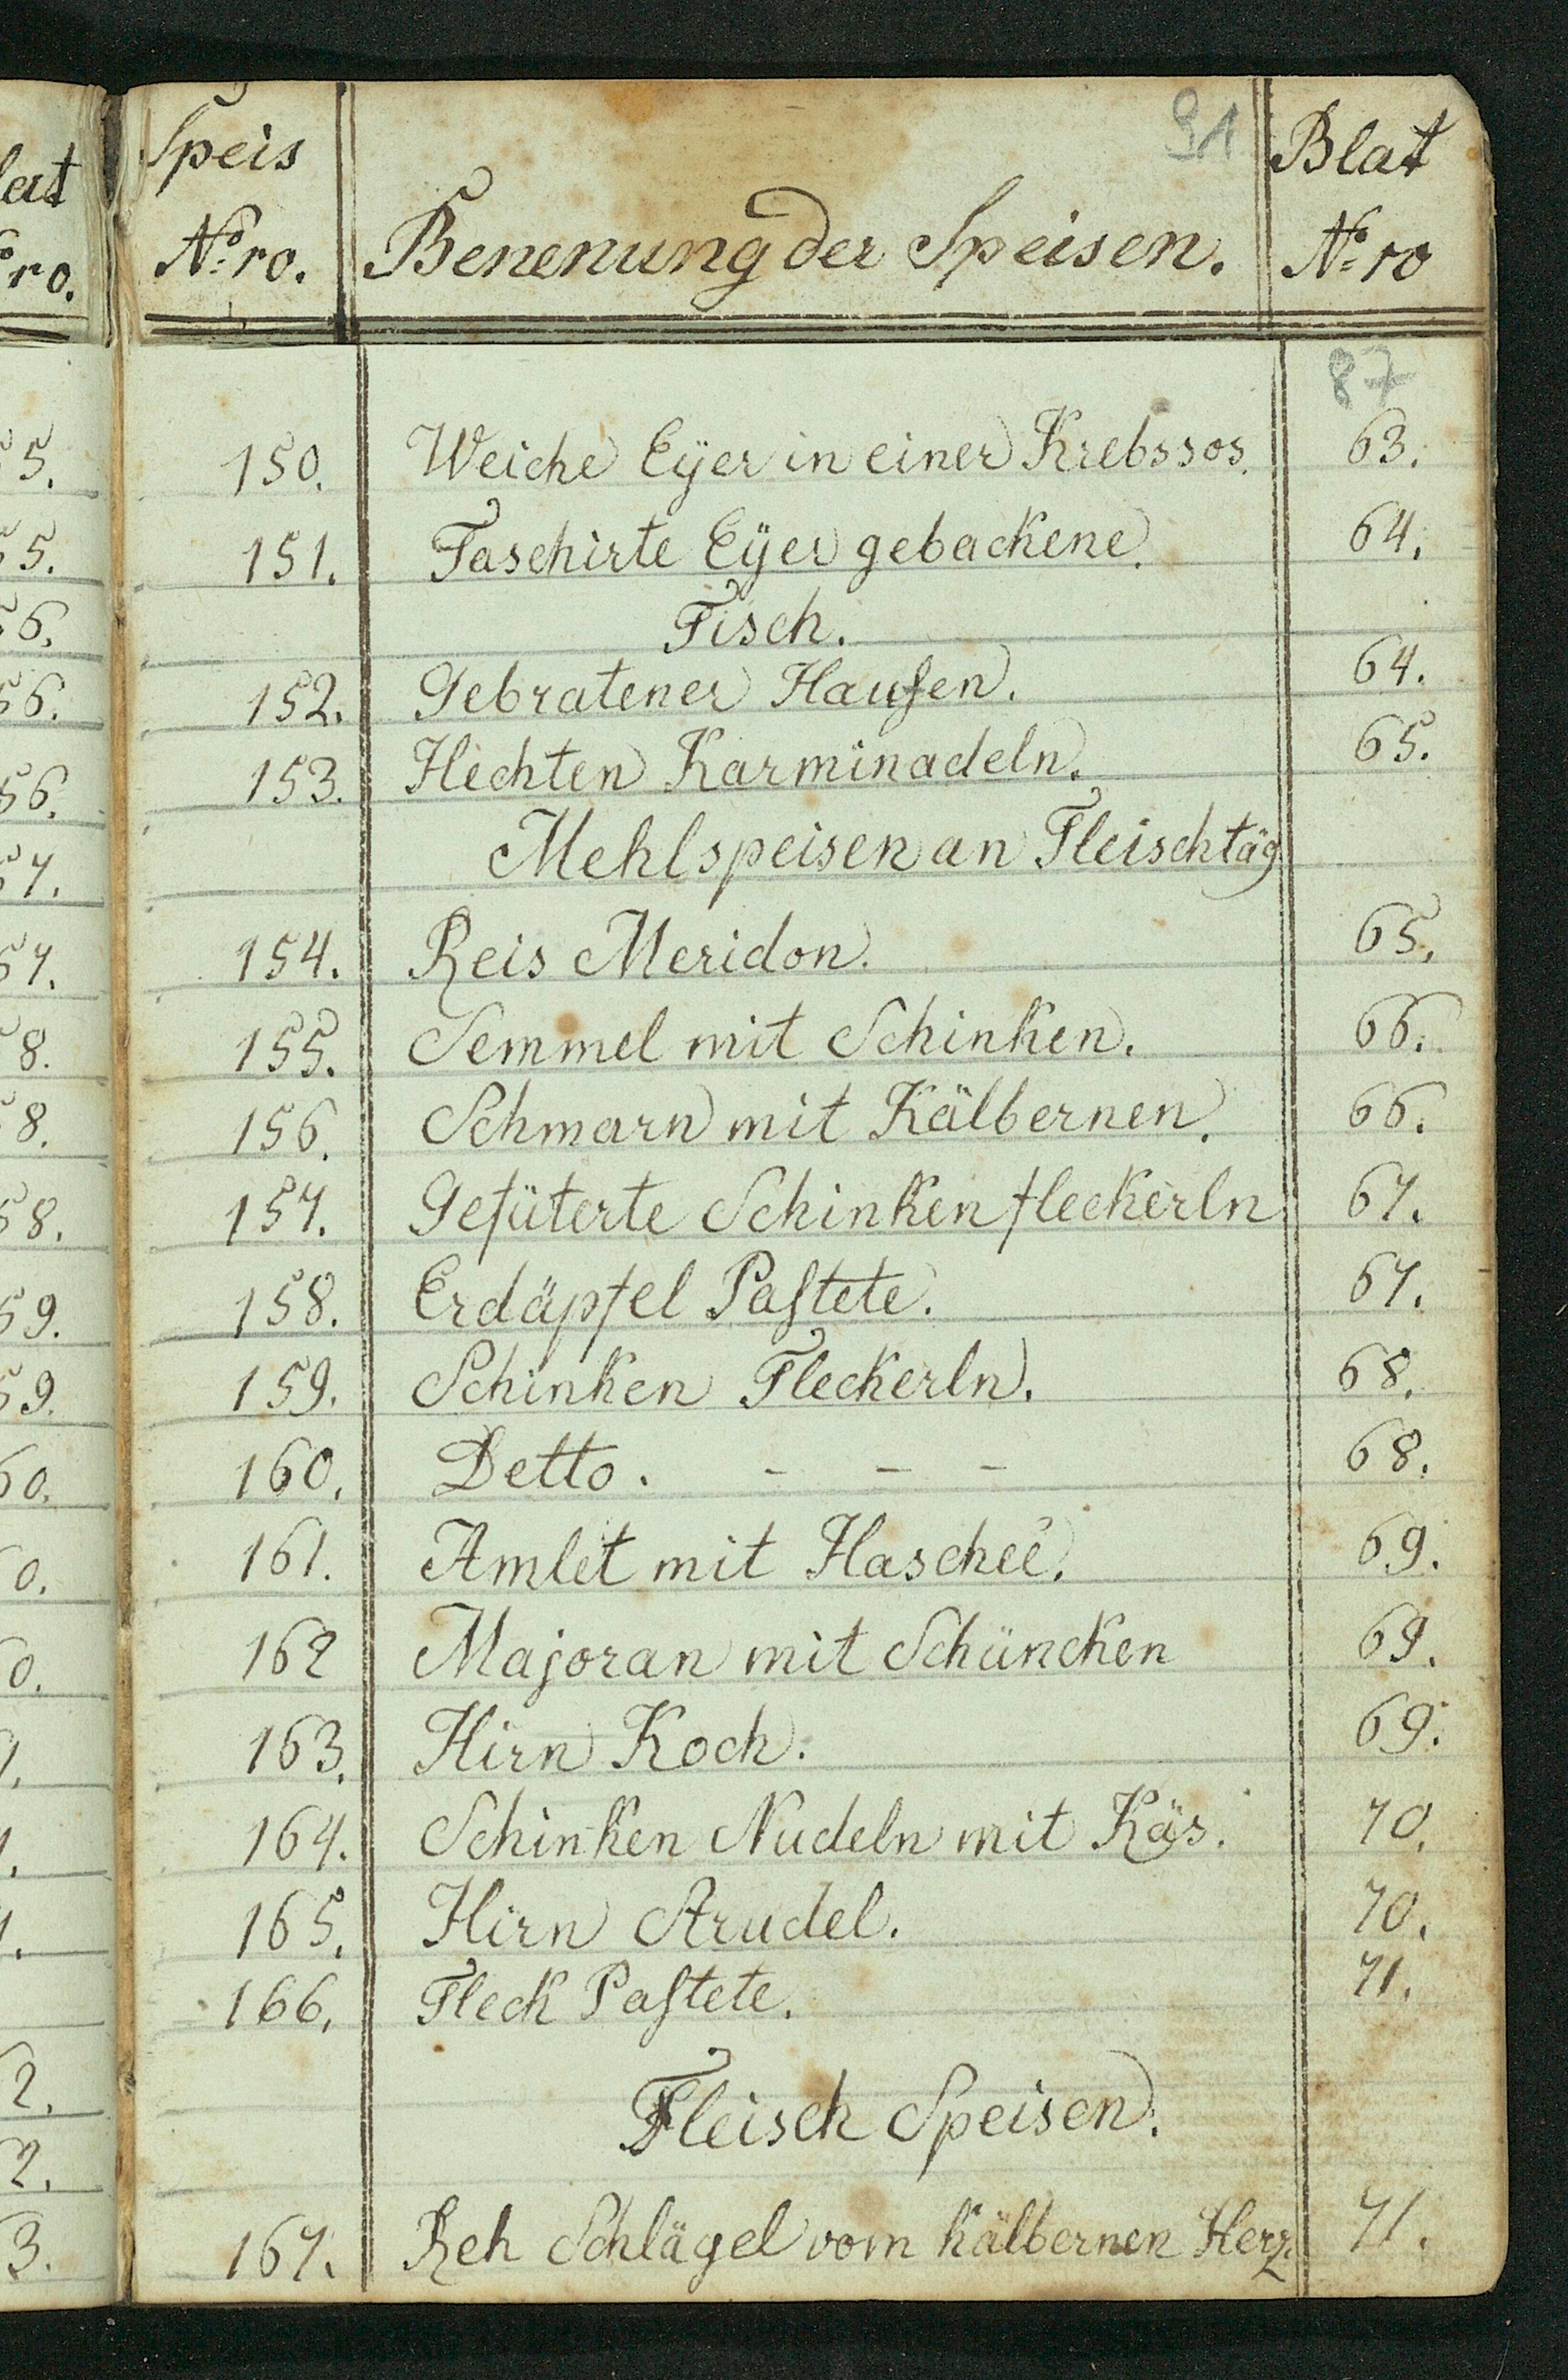 lat
ro.
5.
55.
56.
56.
56.
57.
57.
58.
58.
58.
59.
59.
60.
60.
60.
2.
2.
3.
91
Speis Blat
Nro. Benenung der Speisen. Nro
87
150. Weiche Eÿer in einer Krebssos. 63.
151. Faschirte Eÿer gebackene. 64.
Fisch.
152. Gebratener Hausen. 64.
153. Hechten Karminadeln. 65.
Mehlspeisen an Fleischtäg
154. Reis Meridon. 65.
155. Semmel mit Schinken. 66.
156. Schmarn mit Kälbernen. 66.
157. Gefüterte Schinken fleckerln 67.
158. Erdäpfel Pastete. 67.
159. Schinken Fleckerln. 68.
160. Detto. - - - 68.
161. Amlet mit Hascheé. 69.
162 Majoran mit Schüncken 69.
163. Hirn Koch. 69.
164. Schinken Nudeln mit Käs. 70.
165. Hirn Strudel. 70.
166. Fleck Pastete. 71.
Fleisch Speisen.
167. Reh Schlägel vom kälbernen Herz. 71.